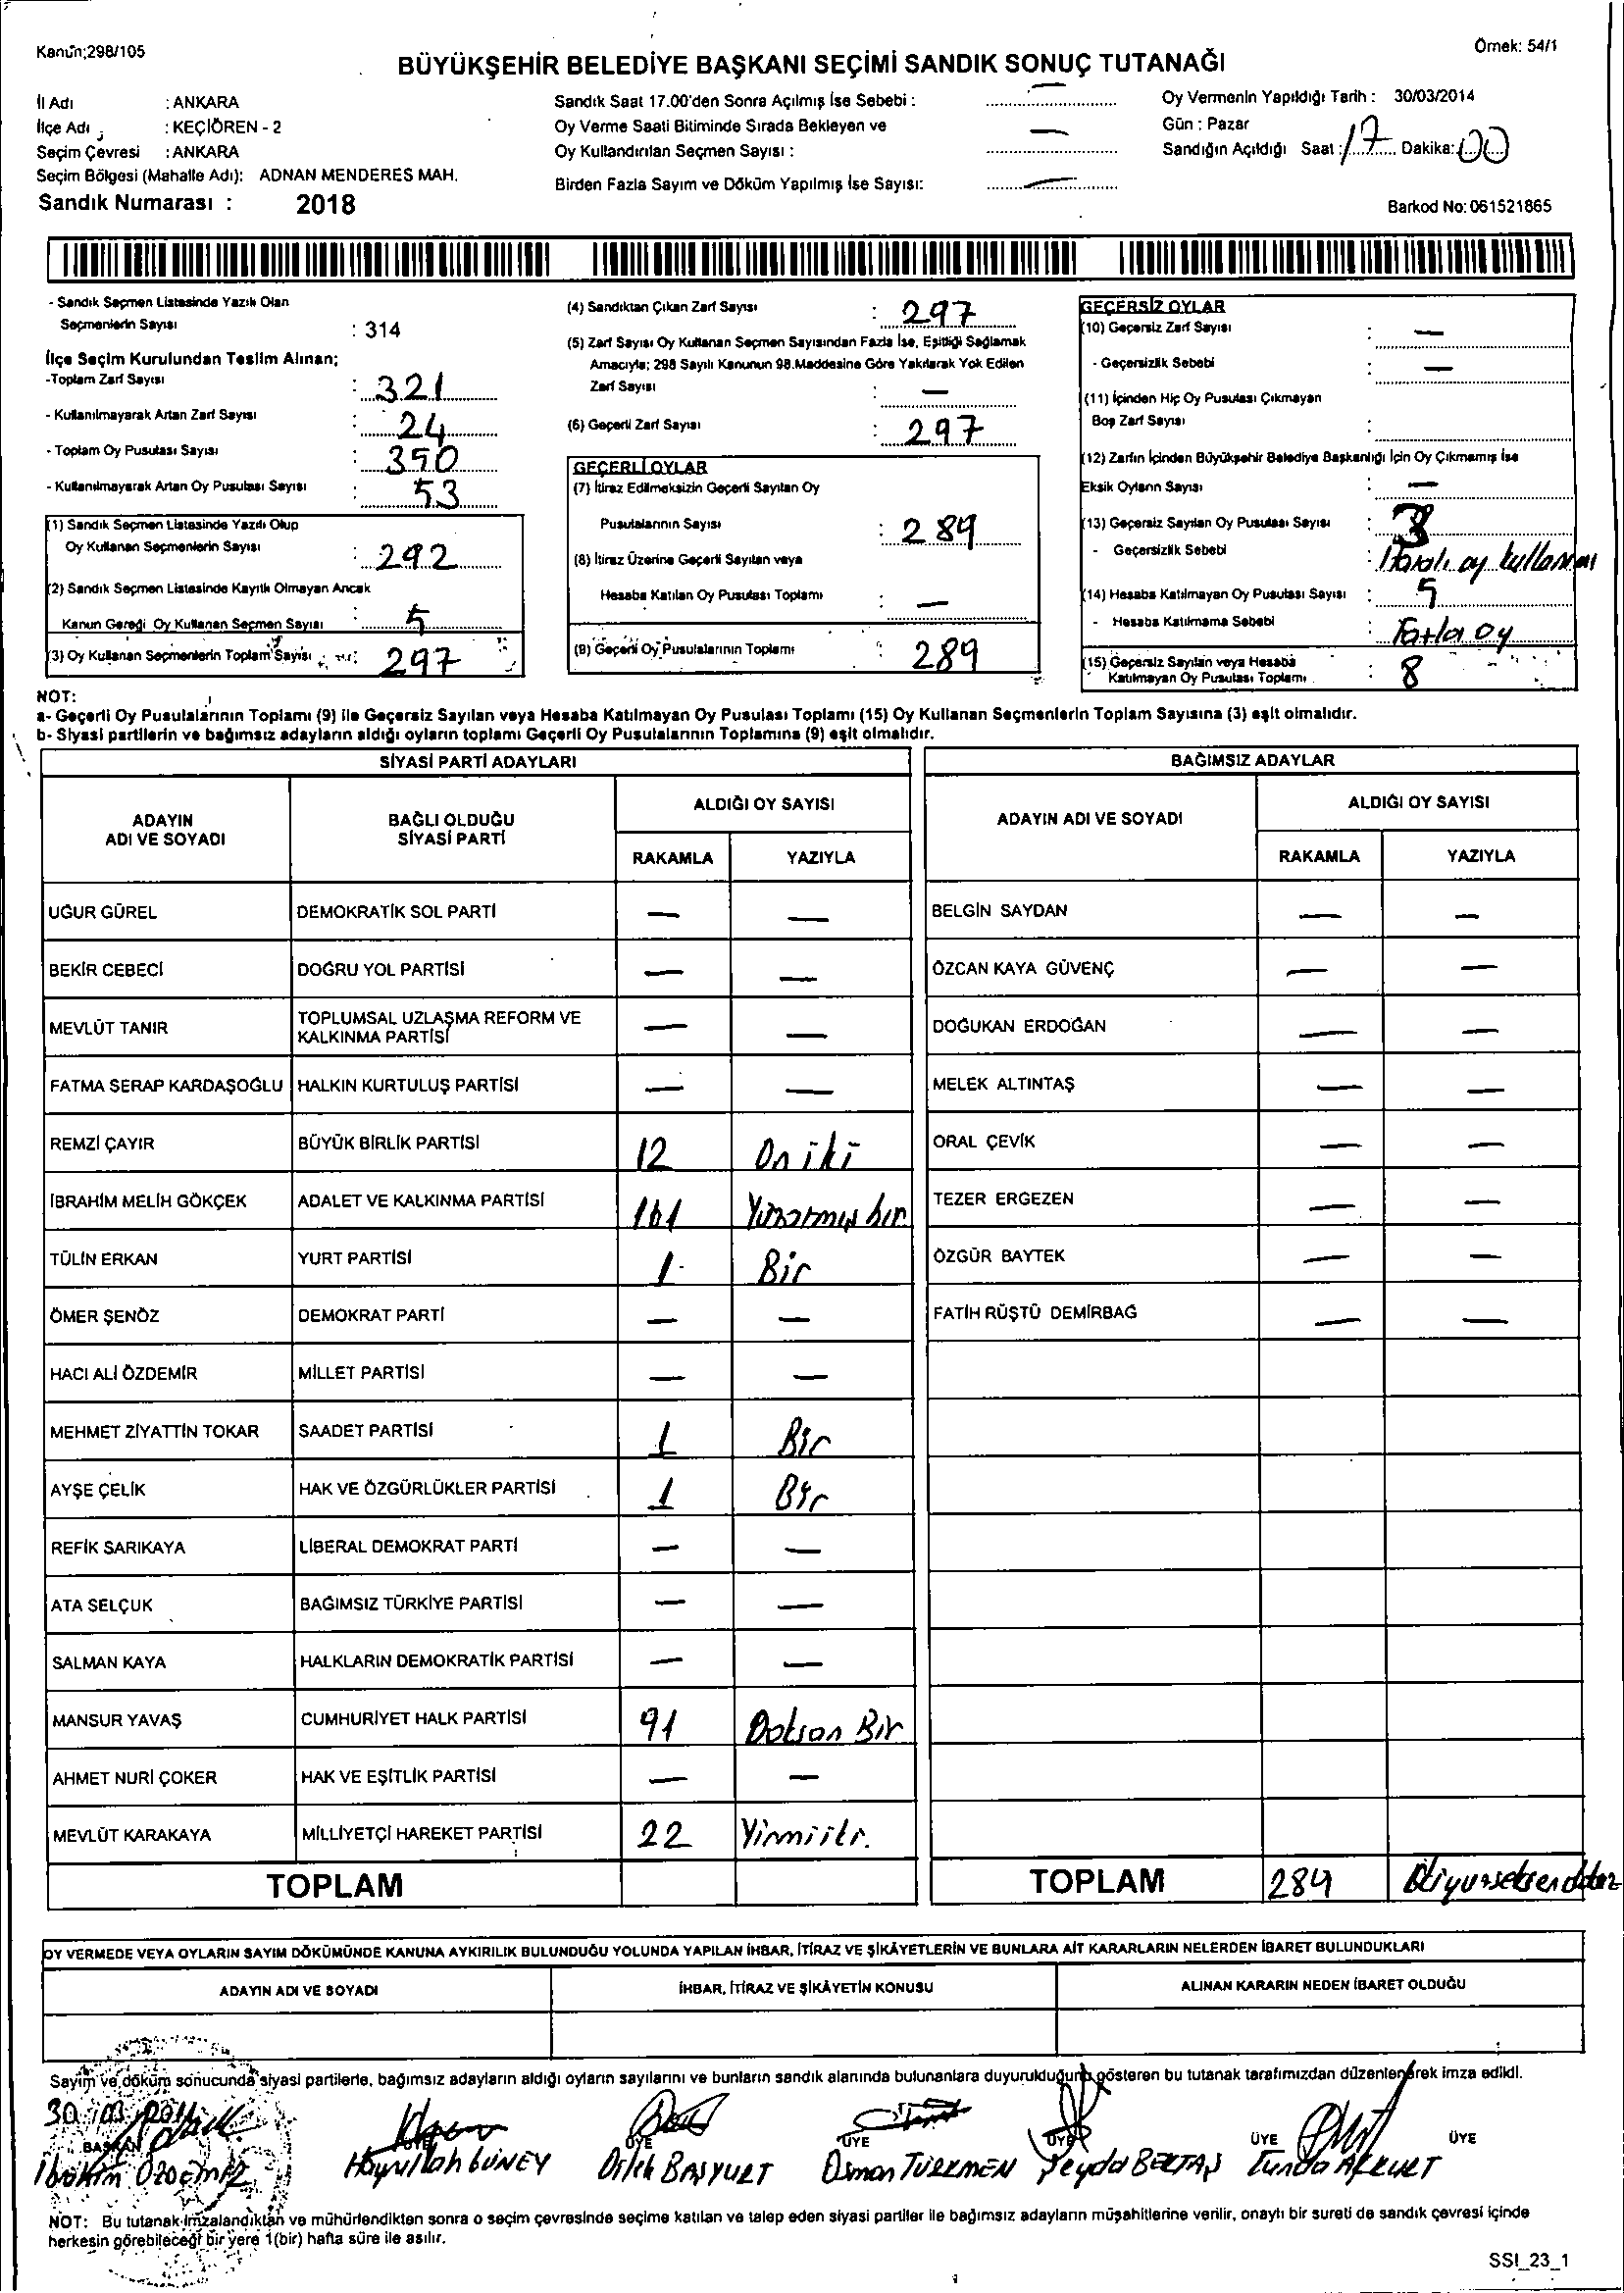 Kanun;298/105
Örnek: 54/1
BÜYÜKŞEHİR BELEDİYE BAŞKANI SEÇİMİ SANDIK SONUÇ TUTANAĞI
İl Adı : ANKARA
İlçe Adı : KEÇİÖREN - 2
Seçim Çevresi : ANKARA
Seçim Bölgesi (Mahalle Adı): ADNAN MENDERES MAH.
Sandık Numarası : 2018
Sandık Saat 17.00'den Sonra Açılmış İse Sebebi : —
Oy Verme Saati Bitiminde Sırada Bekleyen ve
Oy Kullandırılan Seçmen Sayısı : —
Birden Fazla Sayım ve Döküm Yapılmış İse Sayısı: —
Oy Vermenin Yapıldığı Tarih : 30/03/2014
Gün : Pazar
Sandığın Açıldığı Saat : 17 Dakika: 00
Barkod No: 061521865
- Sandık Seçmen Listesinde Yazılı Olan
Seçmenlerin Sayısı : 314
İlçe Seçim Kurulundan Teslim Alınan;
-Toplam Zarf Sayısı : 321
- Kullanılmayarak Artan Zarf Sayısı : 24
- Toplam Oy Pusulası Sayısı : 350
- Kullanılmayarak Artan Oy Pusulası Sayısı : 53
(1) Sandık Seçmen Listesinde Yazılı Olup
Oy Kullanan Seçmenlerin Sayısı : 292
(2) Sandık Seçmen Listesinde Kayıtlı Olmayan Ancak
Kanun Gereği Oy Kullanan Seçmen Sayısı : 5
(3) Oy Kullanan Seçmenlerin Toplam Sayısı : 297
(4) Sandıktan Çıkan Zarf Sayısı : 297
(5) Zarf Sayısı Oy Kullanan Seçmen Sayısından Fazla İse, Eşitliği Sağlamak
Amacıyla; 298 Sayılı Kanunun 98.Maddesine Göre Yakılarak Yok Edilen
Zarf Sayısı : —
(6) Geçerli Zarf Sayısı : 297
GEÇERLİ OYLAR
(7) İtiraz Edilmeksizin Geçerli Sayılan Oy
Pusulalarının Sayısı : 289
(8) İtiraz Üzerine Geçerli Sayılan veya
Hesaba Katılan Oy Pusulası Toplamı : —
(9) Geçerli Oy Pusulalarının Toplamı : 289
GEÇERSİZ OYLAR
(10) Geçersiz Zarf Sayısı : —
- Geçersizlik Sebebi : —
(11) İçinden Hiç Oy Pusulası Çıkmayan
Boş Zarf Sayısı :
(12) Zarfın İçinden Büyükşehir Belediye Başkanlığı İçin Oy Çıkmamış İse
Eksik Oyların Sayısı : —
(13) Geçersiz Sayılan Oy Pusulası Sayısı : 3
- Geçersizlik Sebebi : oy kullanma
(14) Hesaba Katılmayan Oy Pusulası Sayısı : 5
- Hesaba Katılmama Sebebi : Fazla oy
(15) Geçersiz Sayılan veya Hesaba
Katılmayan Oy Pusulası Toplamı : 8
NOT:
a- Geçerli Oy Pusulalarının Toplamı (9) ile Geçersiz Sayılan veya Hesaba Katılmayan Oy Pusulası Toplamı (15) Oy Kullanan Seçmenlerin Toplam Sayısına (3) eşit olmalıdır.
b- Siyasi partilerin ve bağımsız adayların aldığı oyların toplamı Geçerli Oy Pusulalarının Toplamına (9) eşit olmalıdır.
SİYASİ PARTİ ADAYLARI
ADAYIN ADI VE SOYADI BAĞLI OLDUĞU SİYASİ PARTİ ALDIĞI OY SAYISI
RAKAMLA YAZIYLA
UĞUR GÜREL DEMOKRATİK SOL PARTİ — —
BEKİR CEBECİ DOĞRU YOL PARTİSİ — —
MEVLÜT TANIR TOPLUMSAL UZLAŞMA REFORM VE KALKINMA PARTİSİ — —
FATMA SERAP KARDAŞOĞLU HALKIN KURTULUŞ PARTİSİ — —
REMZİ ÇAYIR BÜYÜK BİRLİK PARTİSİ 12 On iki
İBRAHİM MELİH GÖKÇEK ADALET VE KALKINMA PARTİSİ 161 Yüzatmış bir
TÜLİN ERKAN YURT PARTİSİ 1 Bir
ÖMER ŞENÖZ DEMOKRAT PARTİ — —
HACI ALİ ÖZDEMİR MİLLET PARTİSİ — —
MEHMET ZİYATTİN TOKAR SAADET PARTİSİ 1 Bir
AYŞE ÇELİK HAK VE ÖZGÜRLÜKLER PARTİSİ 1 Bir
REFİK SARIKAYA LİBERAL DEMOKRAT PARTİ — —
ATA SELÇUK BAĞIMSIZ TÜRKİYE PARTİSİ — —
SALMAN KAYA HALKLARIN DEMOKRATİK PARTİSİ — —
MANSUR YAVAŞ CUMHURİYET HALK PARTİSİ 91 Doksan Bir
AHMET NURİ ÇOKER HAK VE EŞİTLİK PARTİSİ — —
MEVLÜT KARAKAYA MİLLİYETÇİ HAREKET PARTİSİ 22 Yirmiiki.
TOPLAM
BAĞIMSIZ ADAYLAR
ADAYIN ADI VE SOYADI ALDIĞI OY SAYISI
RAKAMLA YAZIYLA
BELGİN SAYDAN — —
ÖZCAN KAYA GÜVENÇ — —
DOĞUKAN ERDOĞAN — —
MELEK ALTINTAŞ — —
ORAL ÇEVİK — —
TEZER ERGEZEN — —
ÖZGÜR BAYTEK — —
FATİH RÜŞTÜ DEMİRBAĞ — —
TOPLAM 289 ikiyüzseksendokuz
OY VERMEDE VEYA OYLARIN SAYIM DÖKÜMÜNDE KANUNA AYKIRILIK BULUNDUĞU YOLUNDA YAPILAN İHBAR, İTİRAZ VE ŞİKÂYETLERİN VE BUNLARA AİT KARARLARIN NELERDEN İBARET BULUNDUKLARI
ADAYIN ADI VE SOYADI İHBAR, İTİRAZ VE ŞİKÂYETİN KONUSU ALINAN KARARIN NEDEN İBARET OLDUĞU
Sayım ve döküm sonucunda siyasi partilerle, bağımsız adayların aldığı oyların sayılarını ve bunların sandık alanında bulunanlara duyurulduğunu gösteren bu tutanak tarafımızdan düzenlenerek imza edildi.
30/03/2014
BAŞKAN ÜYE ÜYE ÜYE ÜYE ÜYE ÜYE
Hayrullah GÜNEY Dilek BAŞYURT Osman TÜRKMEN Şeyda BEKTAŞ Tunda AKKURT
NOT: Bu tutanak imzalandıktan ve mühürlendikten sonra o seçim çevresinde seçime katılan ve talep eden siyasi partiler ile bağımsız adayların müşahitlerine verilir, onaylı bir sureti de sandık çevresi içinde
herkesin görebileceği bir yere 1(bir) hafta süre ile asılır.
SSI_23_1